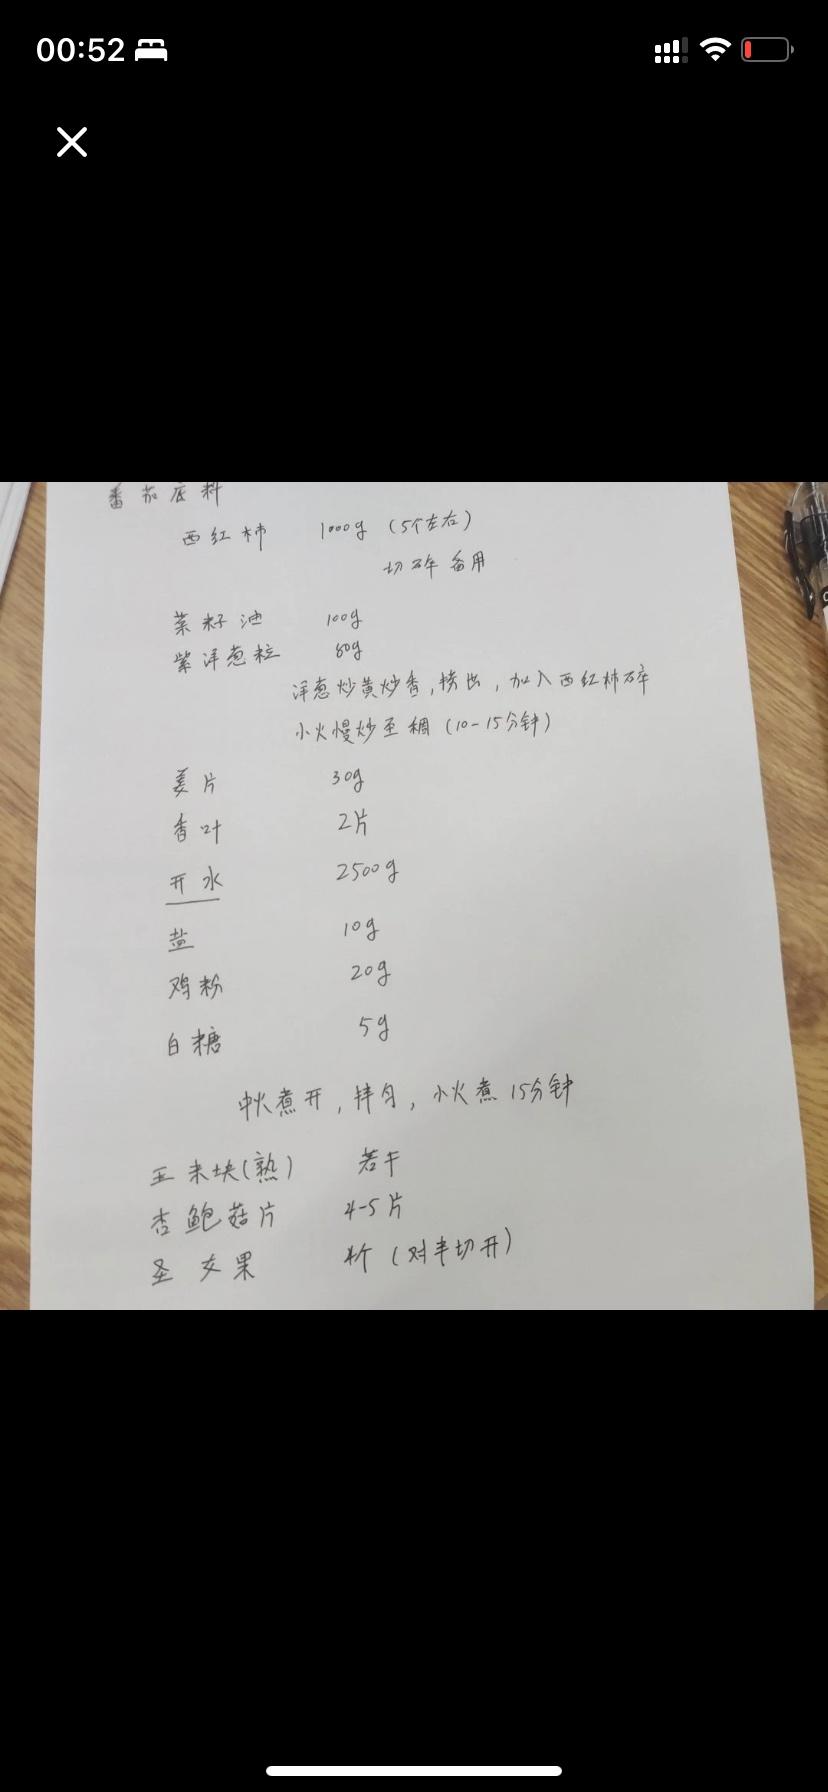 00:52
番茄底料
西红柿 1000g (5个左右)
切碎备用
菜籽油 100g
紫洋葱粒 80g
洋葱炒黄炒香,捞出,加入西红柿碎
小火慢炒至稠 (10-15分钟)
姜片 30g
香叶 2片
开水 2500g
盐 10g
鸡粉 20g
白糖 5g
中火煮开,拌匀,小火煮15分钟
玉米块(熟) 若干
杏鲍菇片 4-5片
圣女果 4个 (对半切开)